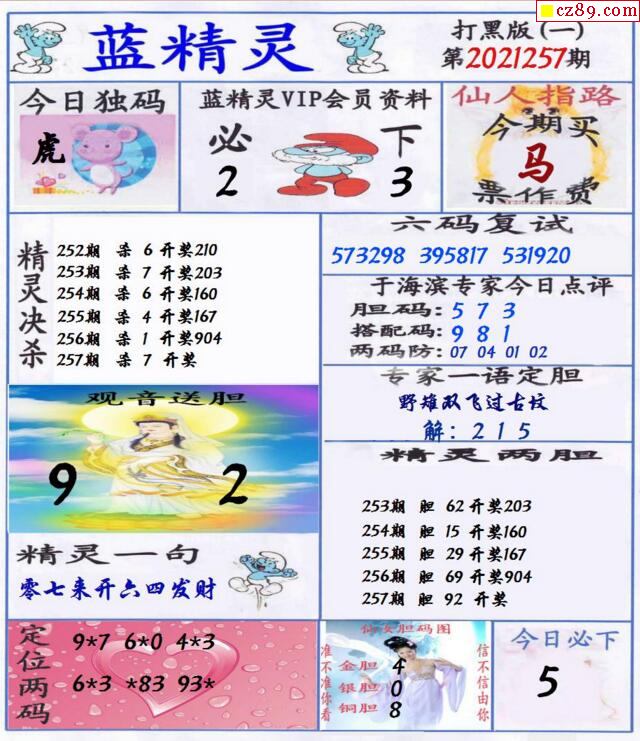 cz89.com
蓝精灵
打黑版(一)
第2021257期
今日独码
虎
蓝精灵VIP会员资料
必 下
2 3
仙人指路
今期买
马
票作费
精灵决杀
252期 杀 6 开奖210
253期 杀 7 开奖203
254期 杀 6 开奖160
255期 杀 4 开奖167
256期 杀 1 开奖904
257期 杀 7 开奖
六码复试
573298 395817 531920
于海滨专家今日点评
胆码: 5 7 3
搭配码: 9 8 1
两码防: 07 04 01 02
专家一语定胆
野雉双飞过古坟
解: 2 1 5
观音送胆
9 2
精灵两胆
253期 胆 62 开奖203
254期 胆 15 开奖160
255期 胆 29 开奖167
256期 胆 69 开奖904
257期 胆 92 开奖
精灵一句
零七来开六四发财
定位两码
9*7 6*0 4*3
6*3 *83 93*
仙女胆码图
准不准你看
金胆 4
银胆 0
铜胆 8
信不信由你
今日必下
5